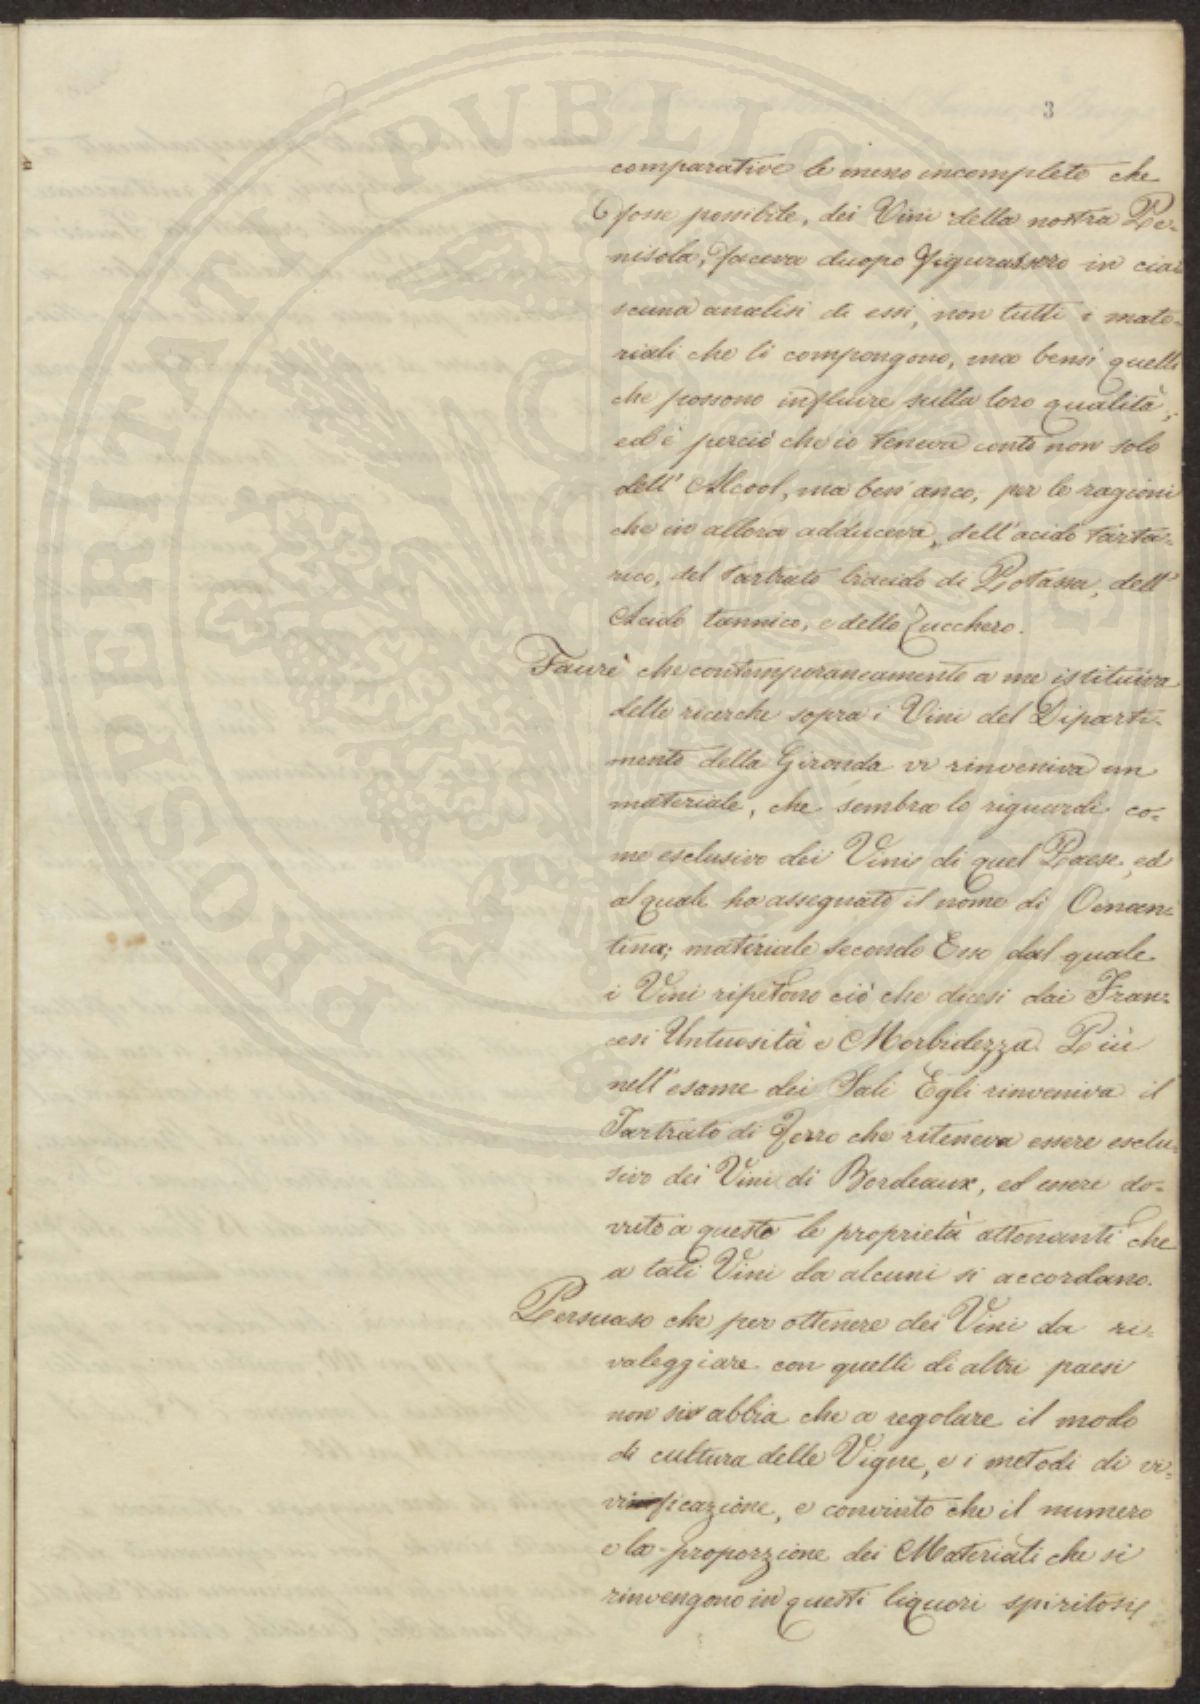 3
comparative le meno incomplete che
fosse possibile, dei Vini della nostra Pe-
nisola, faceva duopo figurassero in cias
scuna analisi di essi, non tutti i mate-
riali che li compongono, ma bensì quelli
che possono influire sulla loro qualità;
ed è perciò che io teneva conto non solo
dell' Alcool, ma ben' anco, per le ragioni
che in allora adduceva, dell'acido tarta-
rico, del tartrato biacido di Potassa, dell'
Acido tannico, e dello Zucchero.
Faurè che contemporaneamente a me istituiva
delle ricerche sopra i Vini del Diparti-
mento della Gironda vi rinveniva un
materiale, che sembra lo riguardi co-
me esclusivo dei Vini di quel Paese, ed
al quale ha assegnato il nome di Oenan-
tina; materiale secondo Esso dal quale
i Vini ripetono ciò che dicesi dai Fran-
cesi Untuosità e Morbidezza. Più
nell'esame dei Sali Egli rinveniva il
Tartrato di Ferro che riteneva essere esclu-
sivo dei Vini di Bordeaux, ed essere do-
vuto a questo le proprietà attonanti che
a tali Vini da alcuni si accordano.
Persuaso che per ottenere dei Vini da ri-
valeggiare con quelli di altri paesi
non si abbia che a regolare il modo
di cultura delle Vigne, e i metodi di vi-
nificazione, e convinto che il numero
e la proporzione dei Materiali che si
rinvengono in questi liquori spiritosi
PROSPERITATI PUBLICAE